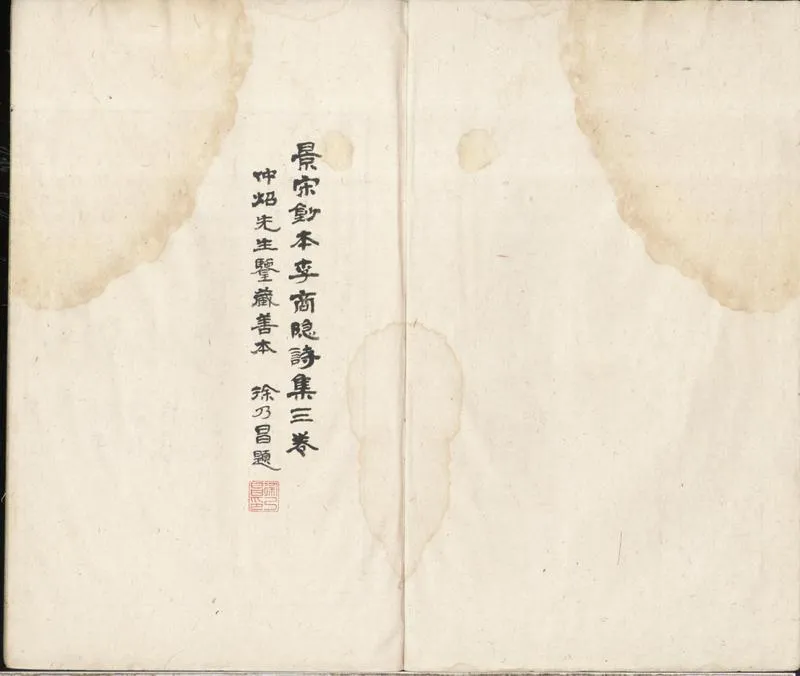 景宋鈔本李商隱詩集三卷
仲炤先生鑒藏善本 徐乃昌題
徐乃昌印